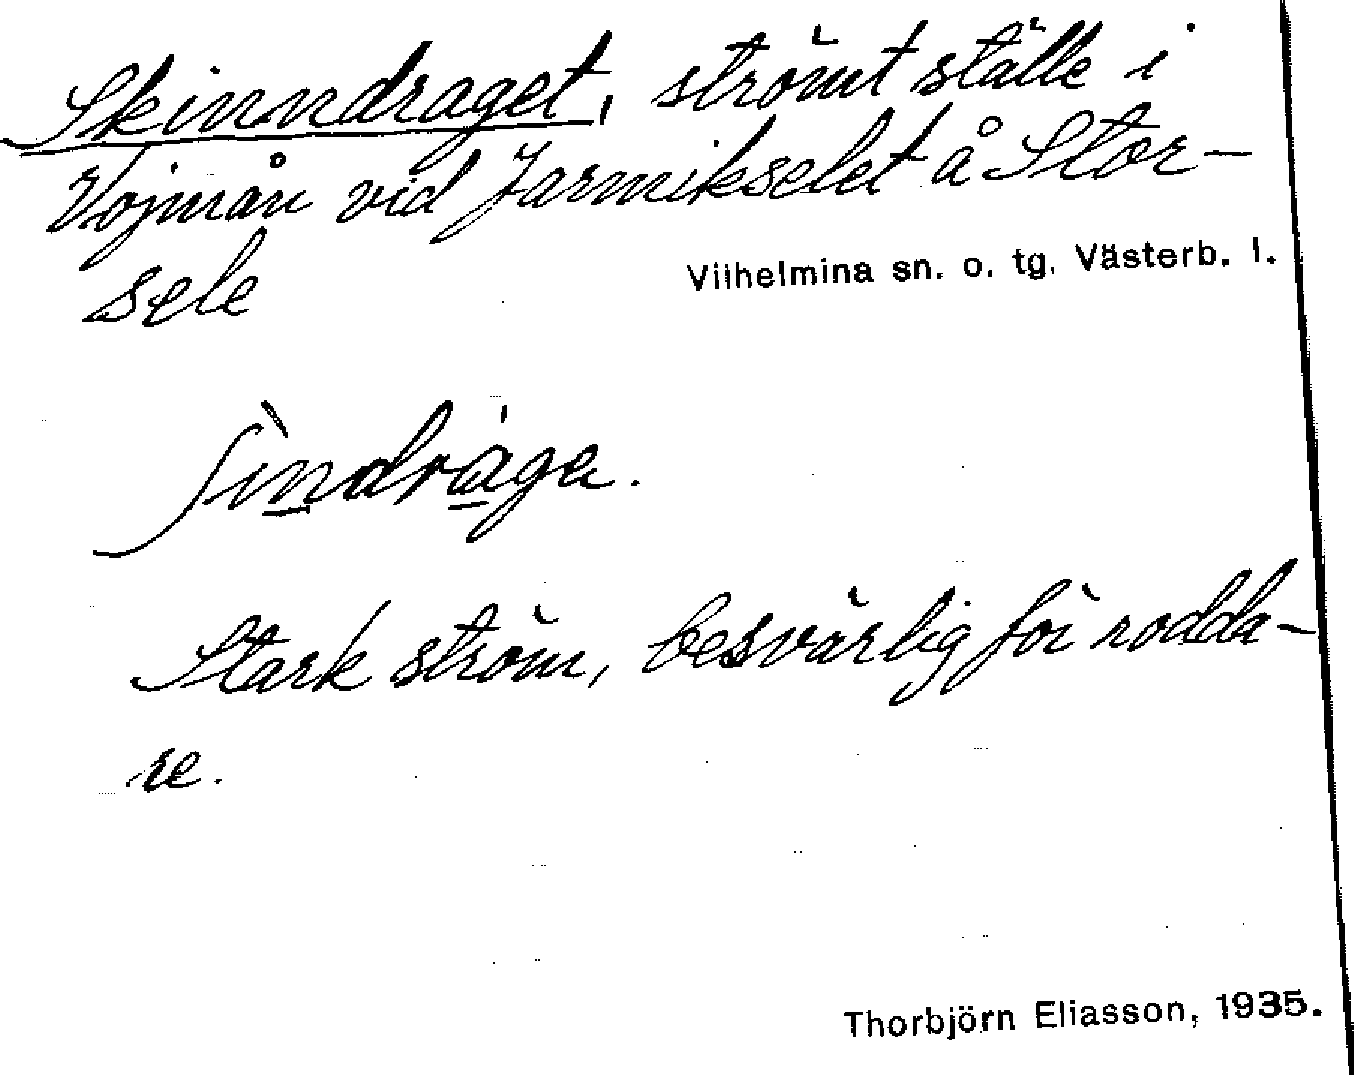 Skinndraget, strömt ställe i
Vojmån vid Jarmikselet å Stor-
sele
Vilhelmina sn. o. tg. Västerb. l.
ʃìndrága.
Stark ström, besvärlig för rodda-
re.
Thorbjörn Eliasson, 1935.